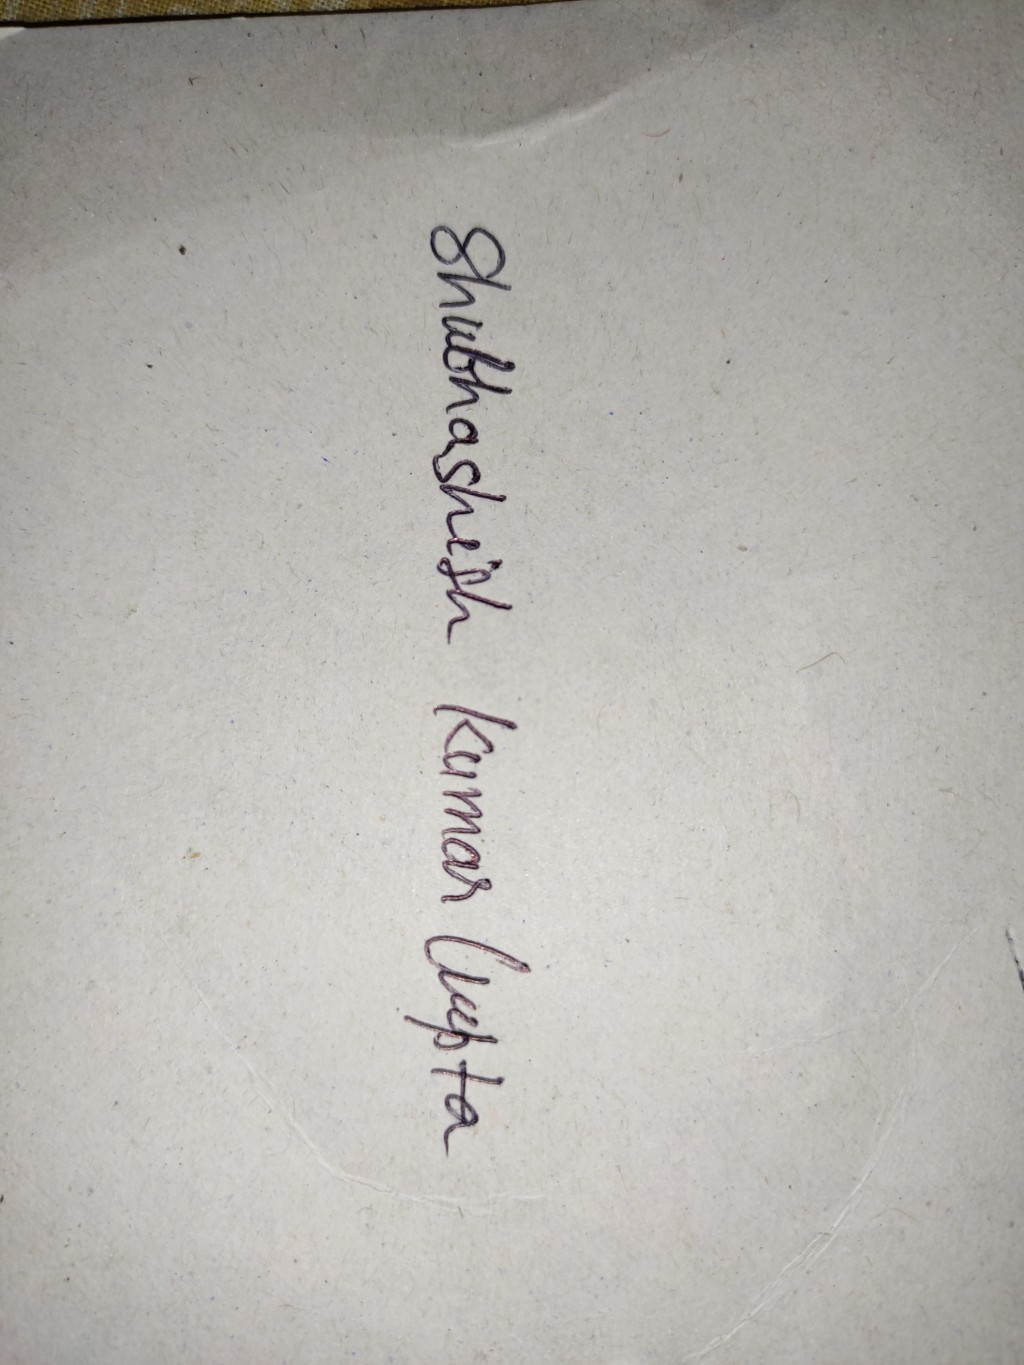 Shubhasheish Kumar Gupta